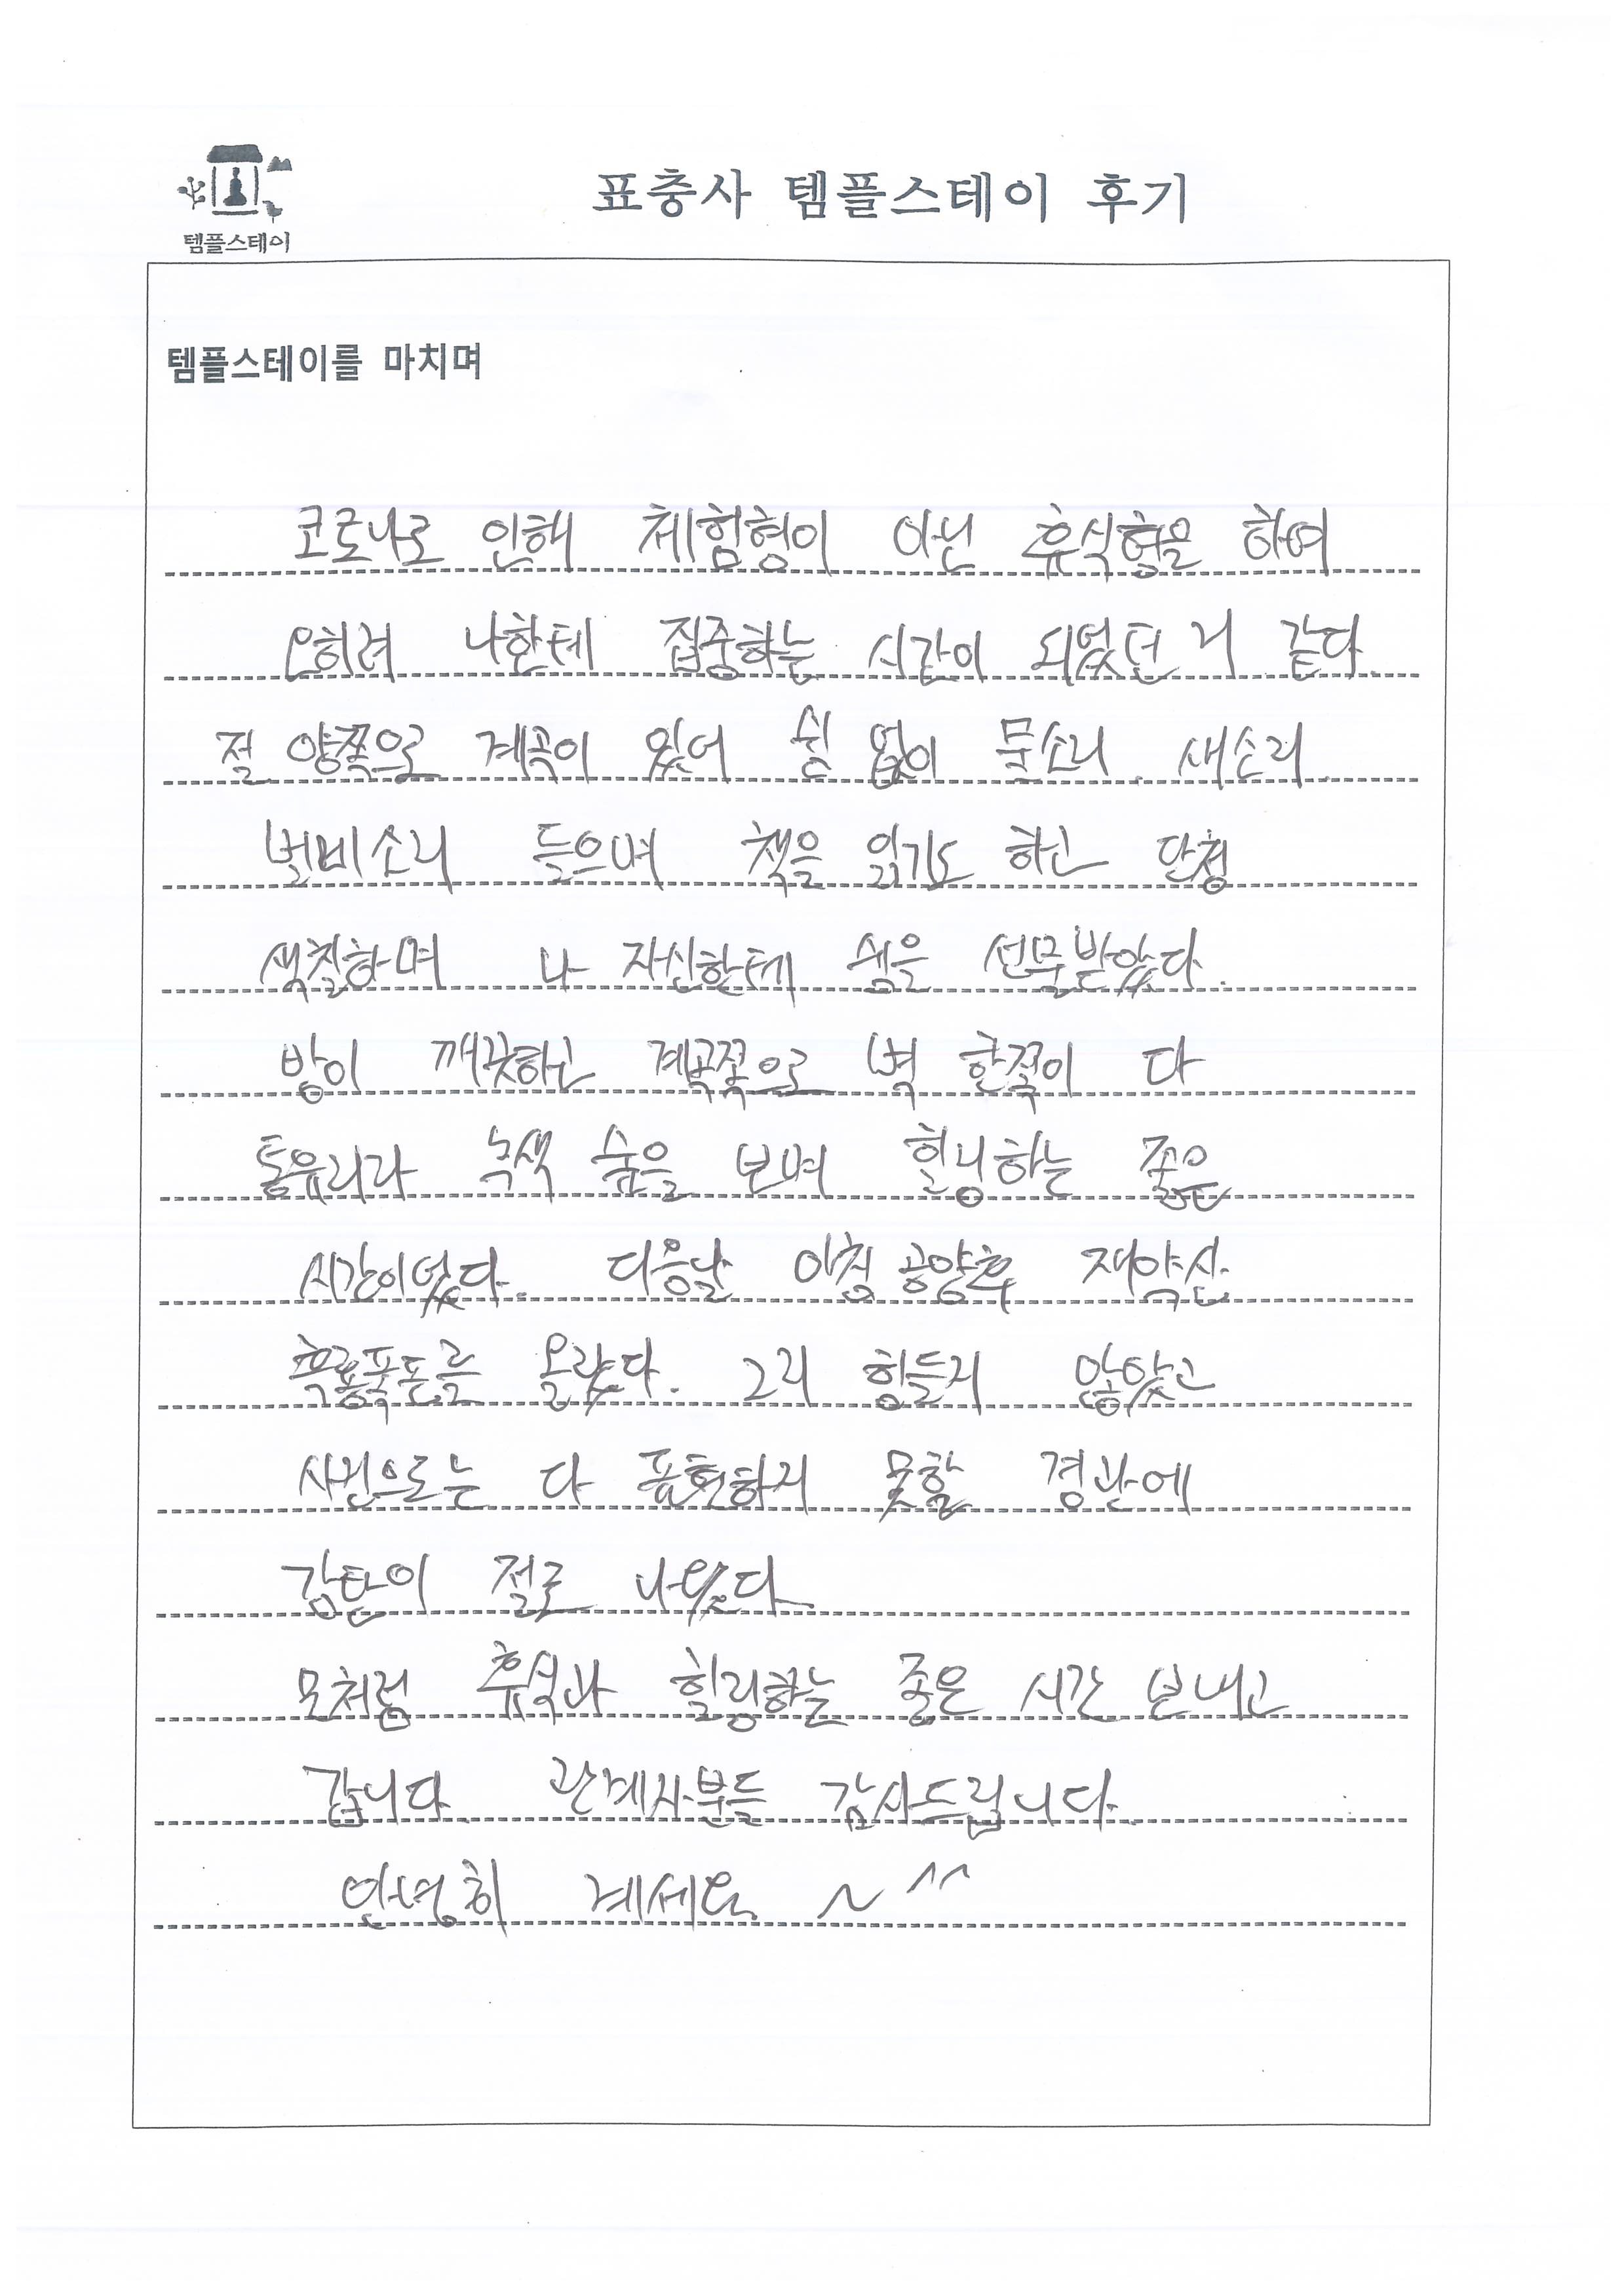 템플스테이
표충사 템플스테이 후기
템플스테이를 마치며
코로나로 인해 체험형이 아닌 휴식형을 하여
오히려 나한테 집중하는 시간이 되었던 거 같다.
절 양쪽으로 계곡이 있어 쉴 없이 물소리. 새소리.
벌비소리 들으며 책을 읽기도 하고 단청
색칠하며 나 자신한테 쉼을 선물받았다.
방이 깨끗하고 계곡쪽으로 벽 한쪽이 다
통유리라 녹색 숲을 보며 힐닝하는 좋은
시간이었다. 다음날 아침 공양후 재약산
흑룡폭포를 올랐다. 그리 힘들지 않았고
사진으로는 다 표현하지 못할 경관에
감탄이 절로 나왔다.
모처럼 휴식과 힐링하는 좋은 시간 보내고
갑니다. 관계자분들 감사드립니다.
안녕히 계세요. ~ ^^